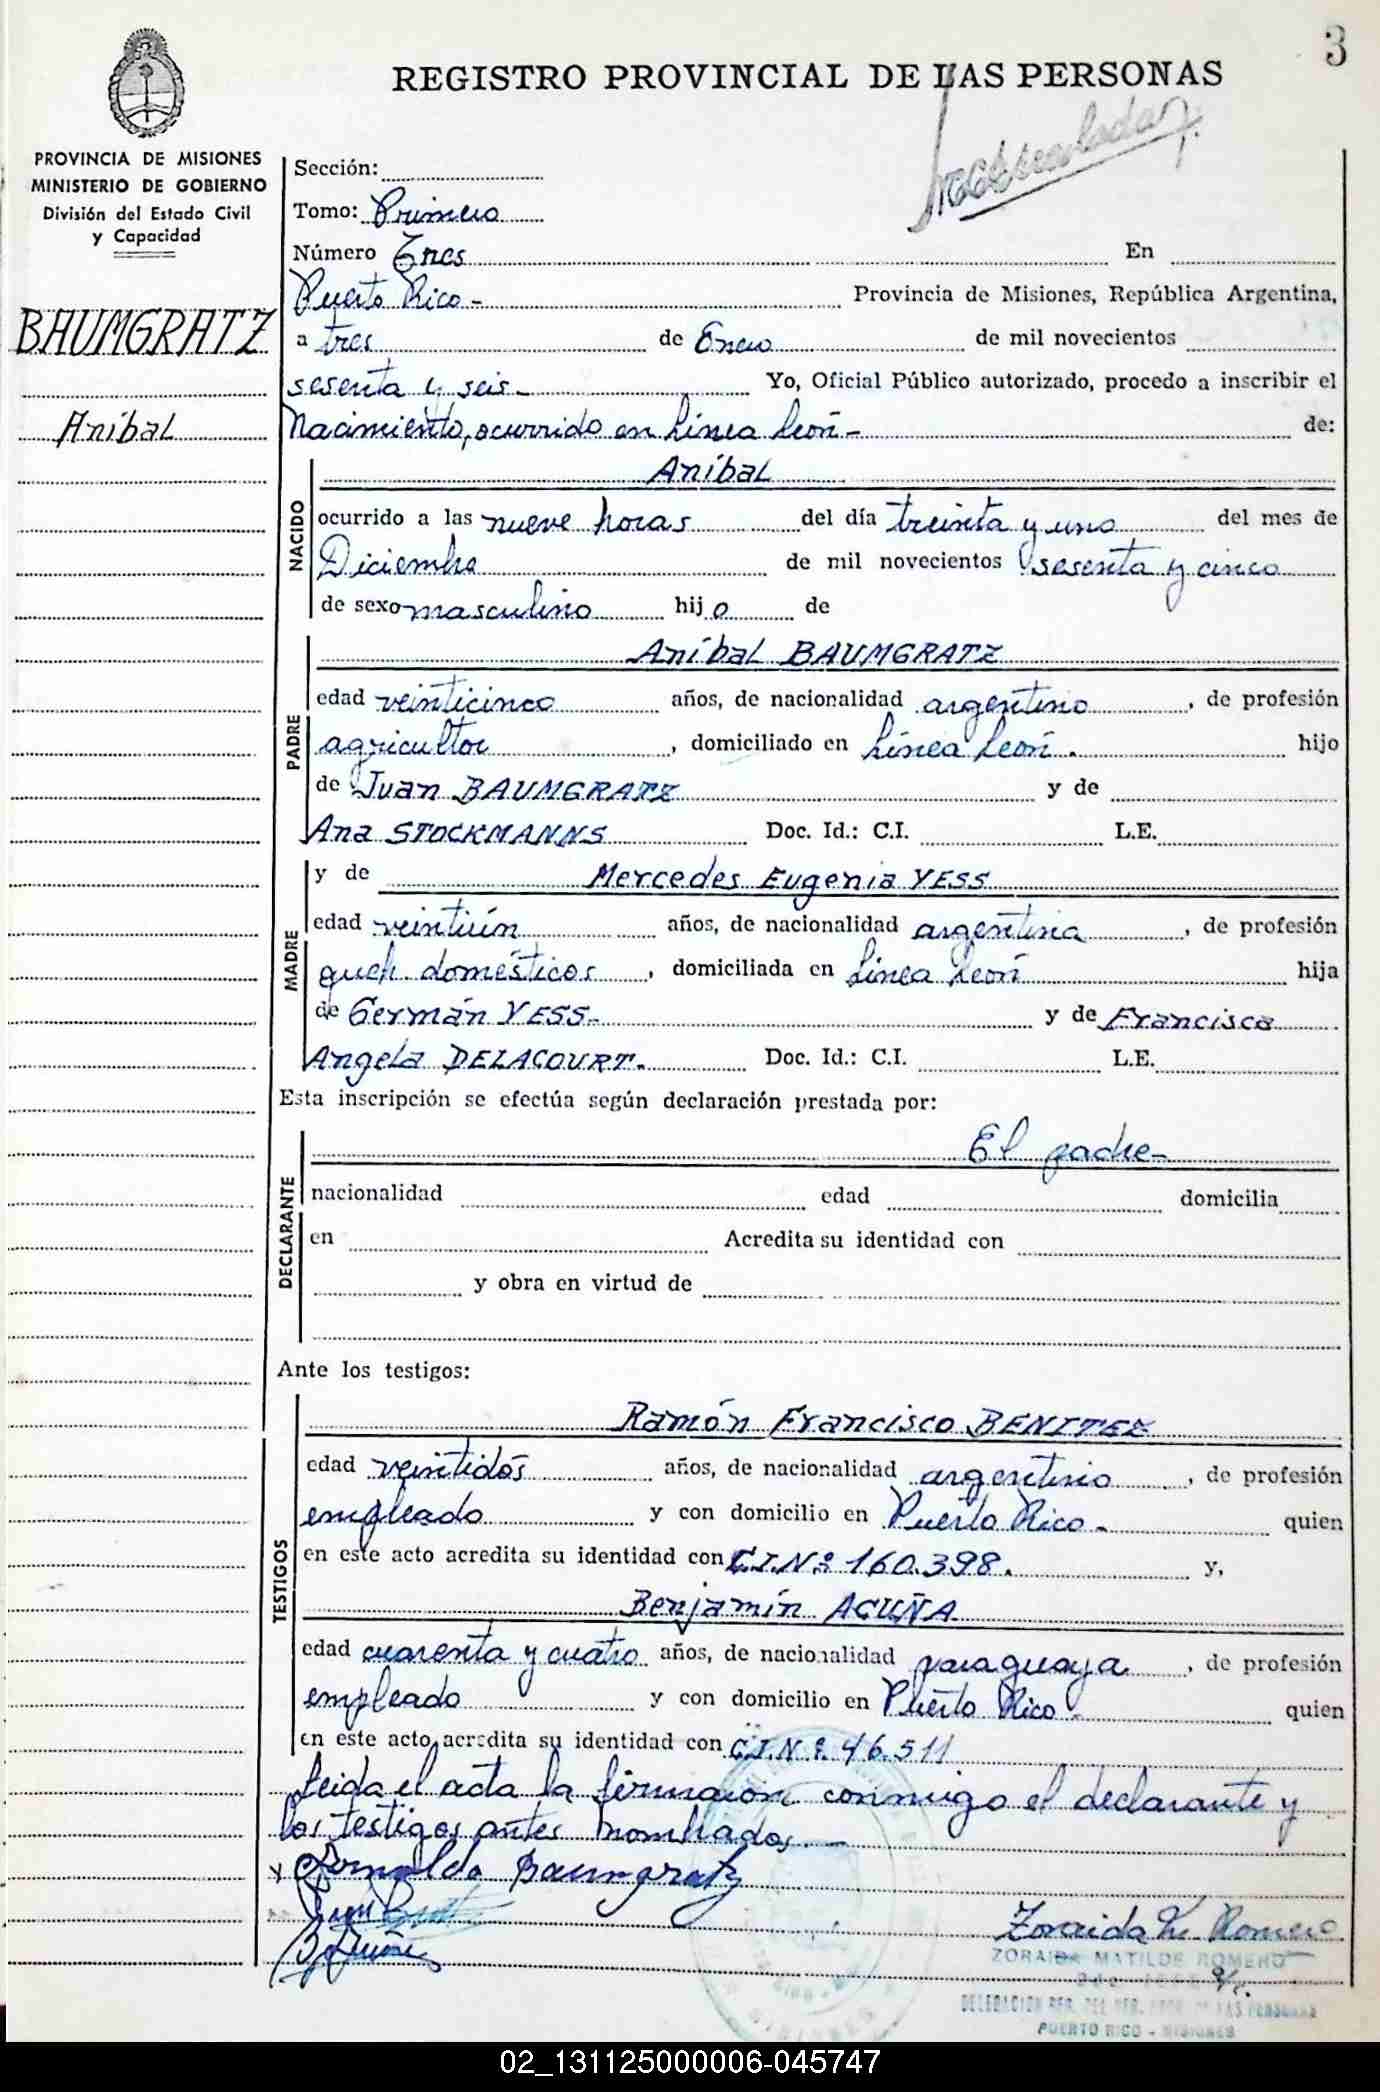 3
REGISTRO PROVINCIAL DE LAS PERSONAS
PROVINCIA DE MISIONES
MINISTERIO DE GOBIERNO
División del Estado Civil
y Capacidad
BAUMGRATZ
Aníbal
Sección:
Tomo: Primero
Número Tres En
Puerto Rico- Provincia de Misiones, República Argentina,
a tres de Enero de mil novecientos
sesenta y seis- Yo, Oficial Público autorizado, procedo a inscribir el
Nacimiento, ocurrido en Línea León- de:
NACIDO
Aníbal
ocurrido a las nueve horas del día treinta y uno del mes de
Diciembre de mil novecientos sesenta y cinco
de sexo masculino hijo de
PADRE
Aníbal BAUMGRATZ
edad veinticinco años, de nacionalidad argentino, de profesión
agricultor, domiciliado en Línea León. hijo
de Juan BAUMGRATZ y de
Ana STOCKMANNS Doc. Id.: C.I. L.E.
MADRE
y de Mercedes Eugenia YESS
edad veintiún años, de nacionalidad argentina, de profesión
queh. domésticos, domiciliada en Línea León hija
de Germán YESS- y de Francisca
Angela DELACOURT. Doc. Id.: C.I. L.E.
Esta inscripción se efectúa según declaración prestada por:
DECLARANTE
El padre-
nacionalidad edad domicilia
en Acredita su identidad con
y obra en virtud de
Ante los testigos:
TESTIGOS
Ramón Francisco BENITEZ
edad veintidós años, de nacionalidad argentino, de profesión
empleado y con domicilio en Puerto Rico- quien
en este acto acredita su identidad con C.I.Nº 160.398. y,
Benjamín ACUÑA
edad cuarenta y cuatro años, de nacionalidad paraguaya, de profesión
empleado y con domicilio en Puerto Rico- quien
en este acto acredita su identidad con C.I.Nº 46.511
Leída el acta la firmaron conmigo el declarante y
los testigos antes nombrados.-
Baumgratz
Zoraida M. Romero
ZORAIDA MATILDE ROMERO
PUERTO RICO - MISIONES
02_131125000006-045747